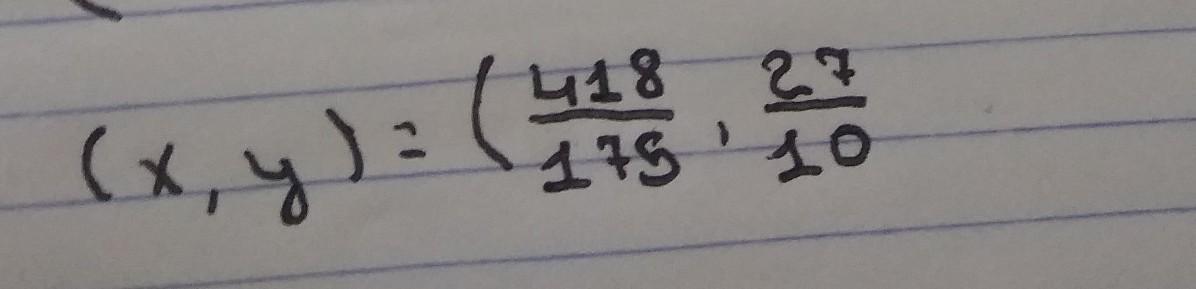 (x, y) = (418/175, 27/10